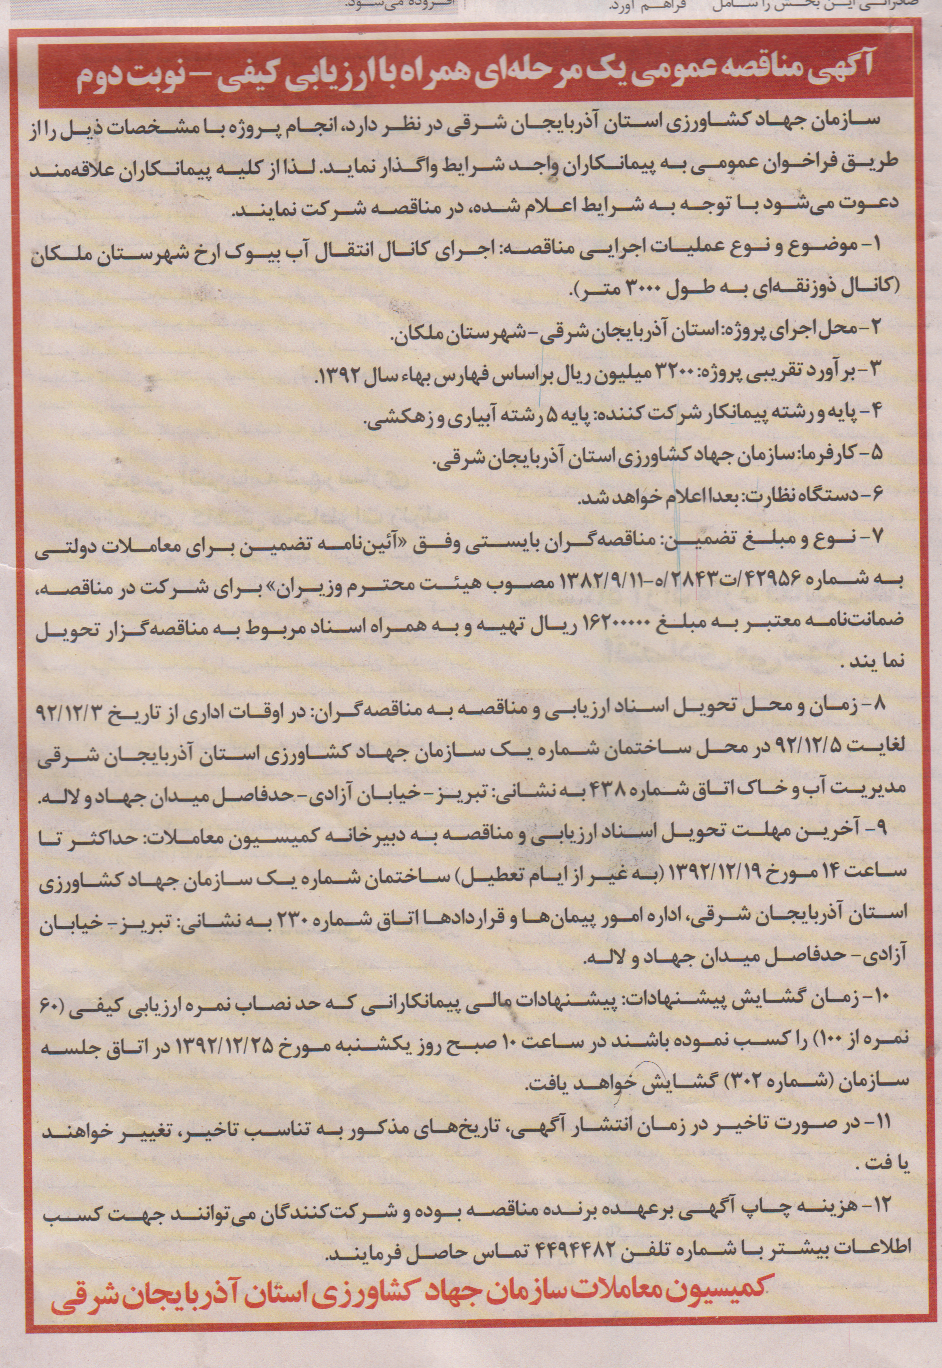 فراهم آورد.
افزوده می‌شود.
آگهی مناقصه عمومی یک مرحله‌ای همراه با ارزیابی کیفی – نوبت دوم
سازمان جهاد کشاورزی استان آذربایجان شرقی در نظر دارد، انجام پروژه با مشخصات ذیل را از
طریق فراخوان عمومی به پیمانکاران واجد شرایط واگذار نماید. لذا از کلیه پیمانکاران علاقه‌مند
دعوت می‌شود با توجه به شرایط اعلام شده، در مناقصه شرکت نمایند.
۱- موضوع و نوع عملیات اجرایی مناقصه: اجرای کانال انتقال آب بیوک ارخ شهرستان ملکان
(کانال ذوزنقه‌ای به طول ۳۰۰۰ متر).
۲- محل اجرای پروژه: استان آذربایجان شرقی- شهرستان ملکان.
۳- برآورد تقریبی پروژه: ۳۲۰۰ میلیون ریال براساس فهارس بهاء سال ۱۳۹۲.
۴- پایه و رشته پیمانکار شرکت کننده: پایه ۵ رشته آبیاری و زهکشی.
۵- کارفرما: سازمان جهاد کشاورزی استان آذربایجان شرقی.
۶- دستگاه نظارت: بعدا اعلام خواهد شد.
۷- نوع و مبلغ تضمین: مناقصه‌گران بایستی وفق «آئین‌نامه تضمین برای معاملات دولتی
به شماره ۴۲۹۵۶/ت۲۸۴۳/ه-۱۳۸۲/۹/۱۱ مصوب هیئت محترم وزیران» برای شرکت در مناقصه،
ضمانت‌نامه معتبر به مبلغ ۱۶۲۰۰۰۰۰ ریال تهیه و به همراه اسناد مربوط به مناقصه‌گزار تحویل
نمایند .
۸- زمان و محل تحویل اسناد ارزیابی و مناقصه به مناقصه‌گران: در اوقات اداری از تاریخ ۹۲/۱۲/۳
لغایت ۹۲/۱۲/۵ در محل ساختمان شماره یک سازمان جهاد کشاورزی استان آذربایجان شرقی
مدیریت آب و خاک اتاق شماره ۴۳۸ به نشانی: تبریز- خیابان آزادی- حدفاصل میدان جهاد و لاله.
۹- آخرین مهلت تحویل اسناد ارزیابی و مناقصه به دبیرخانه کمیسیون معاملات: حداکثر تا
ساعت ۱۴ مورخ ۱۳۹۲/۱۲/۱۹ (به غیر از ایام تعطیل) ساختمان شماره یک سازمان جهاد کشاورزی
استان آذربایجان شرقی، اداره امور پیمان‌ها و قراردادها اتاق شماره ۲۳۰ به نشانی: تبریز- خیابان
آزادی- حدفاصل میدان جهاد و لاله.
۱۰- زمان گشایش پیشنهادات: پیشنهادات مالی پیمانکارانی که حد نصاب نمره ارزیابی کیفی (۶۰
نمره از ۱۰۰) را کسب نموده باشند در ساعت ۱۰ صبح روز یکشنبه مورخ ۱۳۹۲/۱۲/۲۵ در اتاق جلسه
سازمان (شماره ۳۰۲) گشایش خواهد یافت.
۱۱- در صورت تاخیر در زمان انتشار آگهی، تاریخ‌های مذکور به تناسب تاخیر، تغییر خواهند
یافت .
۱۲- هزینه چاپ آگهی برعهده برنده مناقصه بوده و شرکت‌کنندگان می‌توانند جهت کسب
اطلاعات بیشتر با شماره تلفن ۴۴۹۴۴۸۲ تماس حاصل فرمایند.
کمیسیون معاملات سازمان جهاد کشاورزی استان آذربایجان شرقی